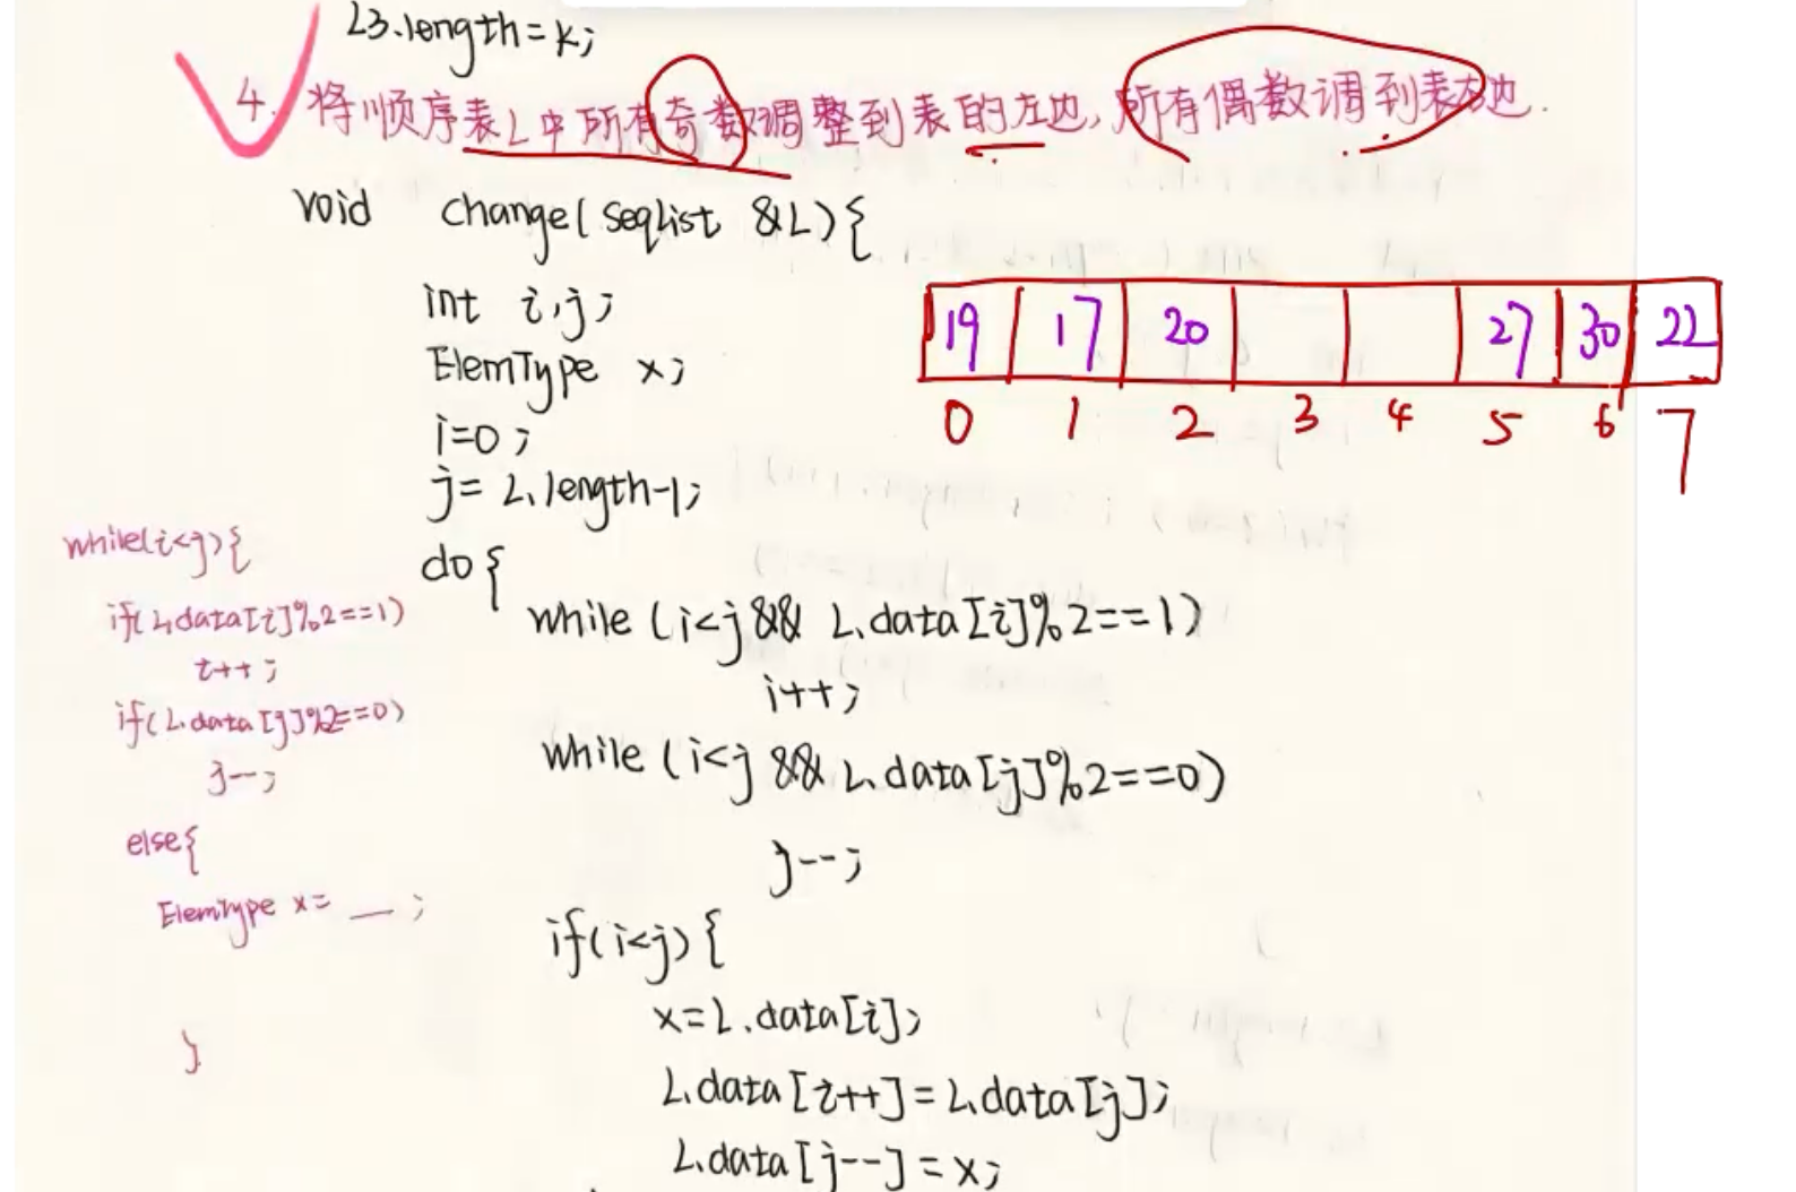 L3.length=k;
4. 将顺序表L中所有奇数调整到表的左边,所有偶数调到表右边.
void change(Seqlist &L){
int i,j;
ElemType x;
i=0;
j=L.length-1;
do{
while(i<j && L.data[i]%2==1)
i++;
while(i<j && L.data[j]%2==0)
j--;
if(i<j){
x=L.data[i];
L.data[i++]=L.data[j];
L.data[j--]=x;
while(i<j){
if(L.data[i]%2==1)
i++;
if(L.data[j]%2==0)
j--;
else{
ElemType x= __ ;
}
19 17 20 27 30 22
0 1 2 3 4 5 6 7